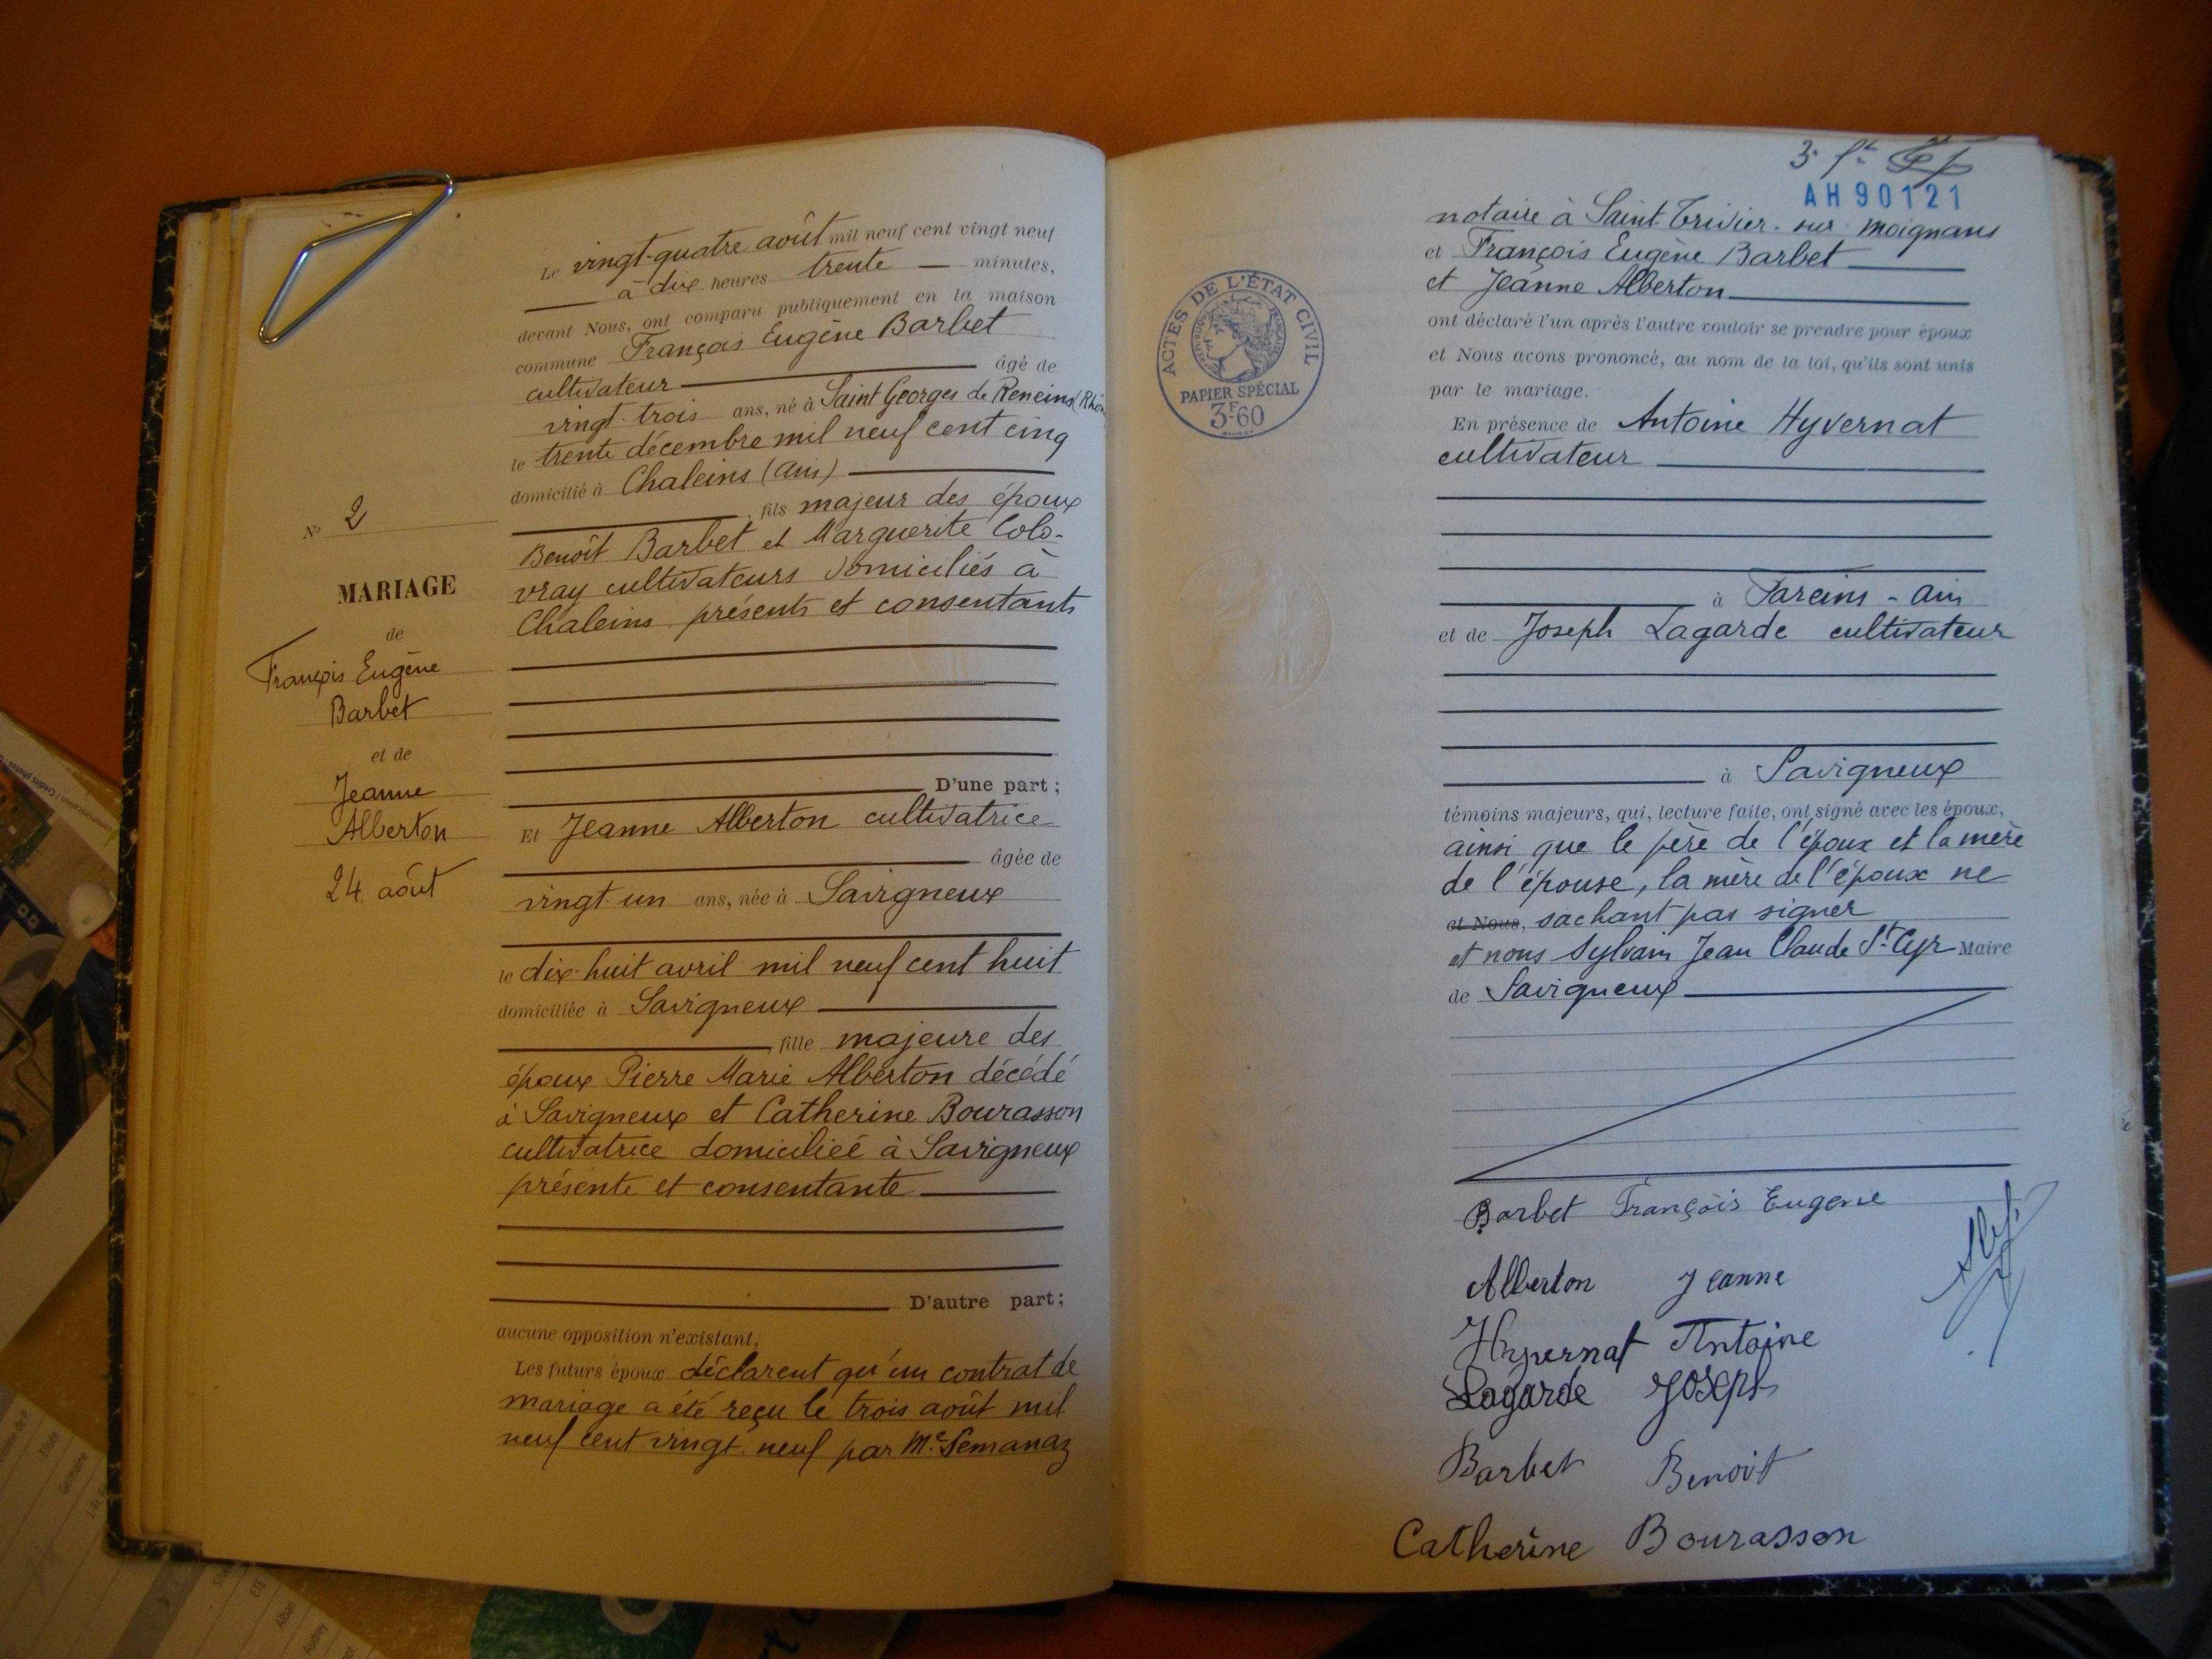 Le vingt-quatre août mil neuf cent vingt neuf
à dix heures trente minutes,
devant Nous, ont comparu publiquement en la maison
commune François Eugène Barbet
cultivateur âgé de
vingt-trois ans, né à Saint Georges de Reneins (Rhô
le trente décembre mil neuf cent cinq
domicilié à Chaleins (Ain)
, fils majeur des époux
Benoît Barbet et Marguerite Colo-
vray cultivateurs domiciliés à
Chaleins présents et consentants
D'une part ;
Et Jeanne Alberton cultivatrice
âgée de
vingt-un ans, née à Savigneux
le dix-huit avril mil neuf cent huit
domiciliée à Savigneux
, fille majeure des
époux Pierre Marie Alberton décédé
à Savigneux et Catherine Bourasson
cultivatrice domiciliée à Savigneux
présente et consentante
D'autre part ;
aucune opposition n'existant,
Les futurs époux déclarent qu'un contrat de
mariage a été reçu le trois août mil
neuf cent vingt-neuf par Me Semanaz
N° 2
MARIAGE
de
François Eugène
Barbet
et de
Jeanne
Alberton
24 août
AH 90121
ACTES DE L'ÉTAT CIVIL
PAPIER SPÉCIAL
3F60
notaire à Saint-Trivier-sur-moignans
et François Eugène Barbet
et Jeanne Alberton
ont déclaré l'un après l'autre vouloir se prendre pour époux
et Nous avons prononcé, au nom de la loi, qu'ils sont unis
par le mariage.
En présence de Antoine Hyvernat
cultivateur
à Fareins - Ain
et de Joseph Lagarde cultivateur
à Savigneux
témoins majeurs, qui, lecture faite, ont signé avec les époux,
ainsi que le père de l'époux et la mère
de l'épouse, la mère de l'époux ne
et Nous, sachant pas signer
et nous Sylvain Jean Claude St Cyr Maire
de Savigneux
Barbet François Eugene
Alberton Jeanne
Hyvernat Antoine
Lagarde Joseph
Barbet Benoit
Catherine Bourasson